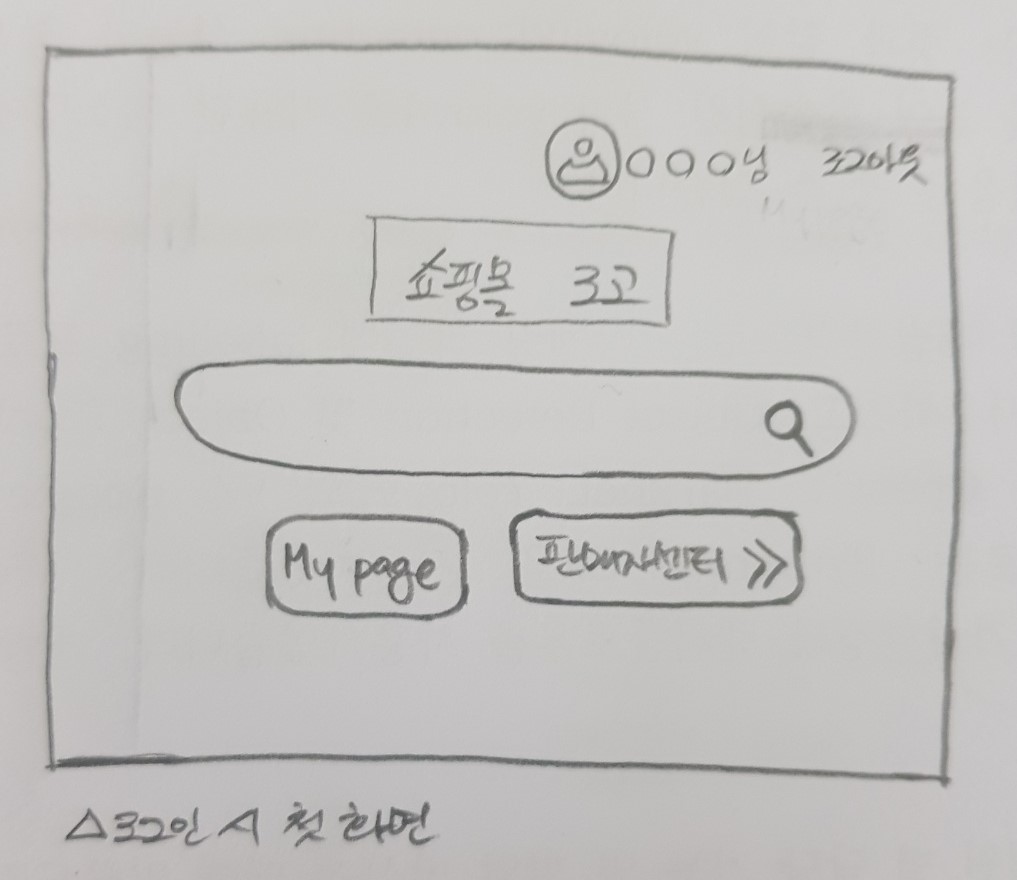 ○○○님 로그아웃
쇼핑몰 로고
My page
판매자센터 >>
△로그인 시 첫 화면